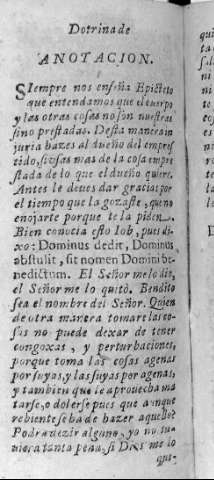 Dotrina de
ANOTACION.
SIempre nos enseña Epicteto
que entendamos que el cuerpo
y las otras cosas no son nuestras
sino prestadas. Desta manera in
juria hazes al dueño del empres
tido, si vsas mas de la cosa empre
stada de lo que el dueño quiere.
Antes le deues dar gracias por
el tiempo que la gozaste, que no
enojarte porque te la piden.
Bien conocia esto Iob, pues di-
xo: Dominus dedit, Dominus
abstulit, sit nomen Domini be-
nedictum. El Señor me lo dio,
el Señor me lo quitò. Bendito
sea el nombre del Señor. Quien
de otra manera tomare las co-
sas no puede dexar de tener
congoxas, y perturbaciones,
porque toma las cosas agenas
por suyas, y las suyas por agenas;
y tambien que le aprouecha ma
tarse, o dolerse pues que aunque
rebiente se ha de hazer aquello?
Podra dezir alguno, yo no tu-
uiera tanta pena, si Dios me lo
qui-